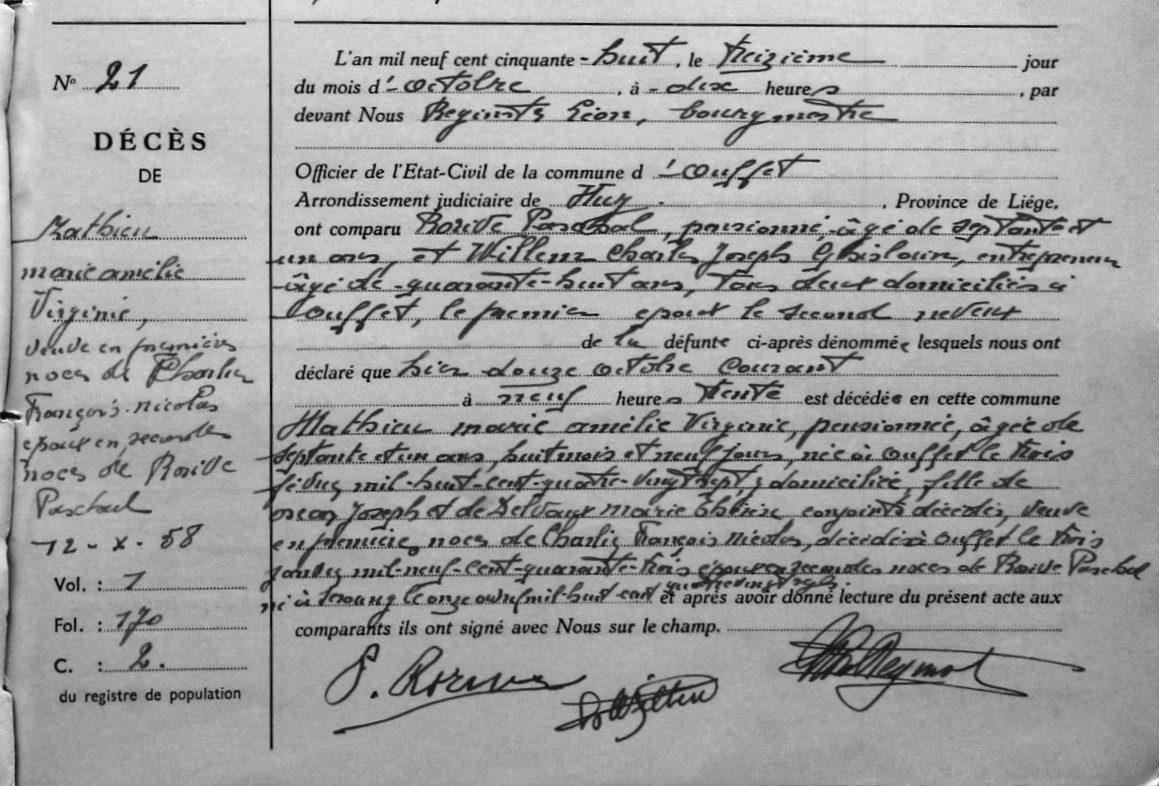 N° 21
DÉCÈS
DE
Mathieu
marie amélie
Virginie,
veuve en premières
noces de Charlier
François-nicolas
épouse en secondes
noces de Rorive
Paschal
12-X-58
Vol. : 1
Fol. : 170
C. : 2.
du registre de population
L'an mil neuf cent cinquante-huit, le treizième jour
du mois d'octobre, à dix heures, par
devant Nous Léon, bourgmestre
Officier de l'Etat-Civil de la commune d'ouffet
Arrondissement judiciaire de Huy, Province de Liége,
ont comparu Rorive Paschal, pensionné, âgé de septante et
un ans, et Willem Charles Joseph Ghislain, entrepreneur
âgé de quarante-huit ans, tous deux domiciliés à
ouffet, le premier époux le second neveux
de la défunte ci-après dénommée lesquels nous ont
déclaré que hier douze octobre courant
à neuf heures trente est décédée en cette commune
Mathieu marie amélie Virginie, pensionnée, âgée de
septante et un ans, huit mois et neuf jours, née à ouffet le trois
mil-huit-cent-quatre-vingt sept, domiciliée, fille de
Joseph et de Delvaux Marie conjoints décédés, veuve
en premières noces de Charlier François Nicolas, décédé à ouffet le trois
mil-neuf-cent-quarante-trois épouse en secondes noces de Rorive Paschal
né à le onze mil huit cent quatre vingt sept. et après avoir donné lecture du présent acte aux
comparants ils ont signé avec Nous sur le champ.
P. Rorive